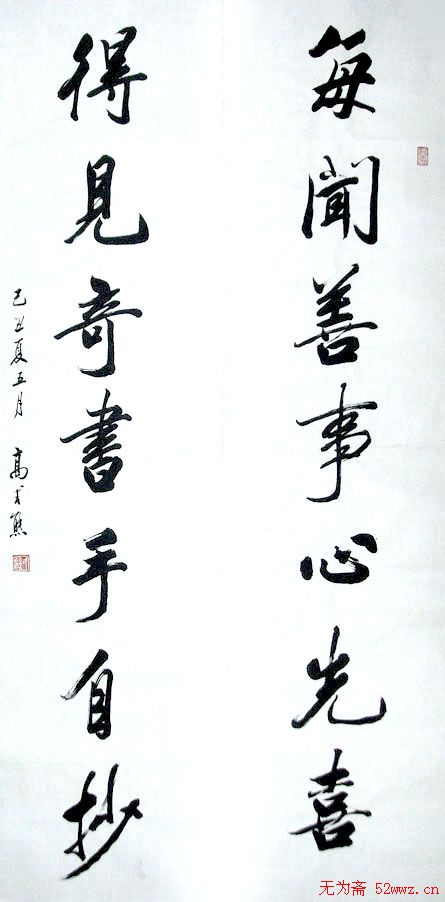 每聞善事心先喜
得見奇書手自抄
己丑夏五月 高式熊
无为斋 52wwz.cn